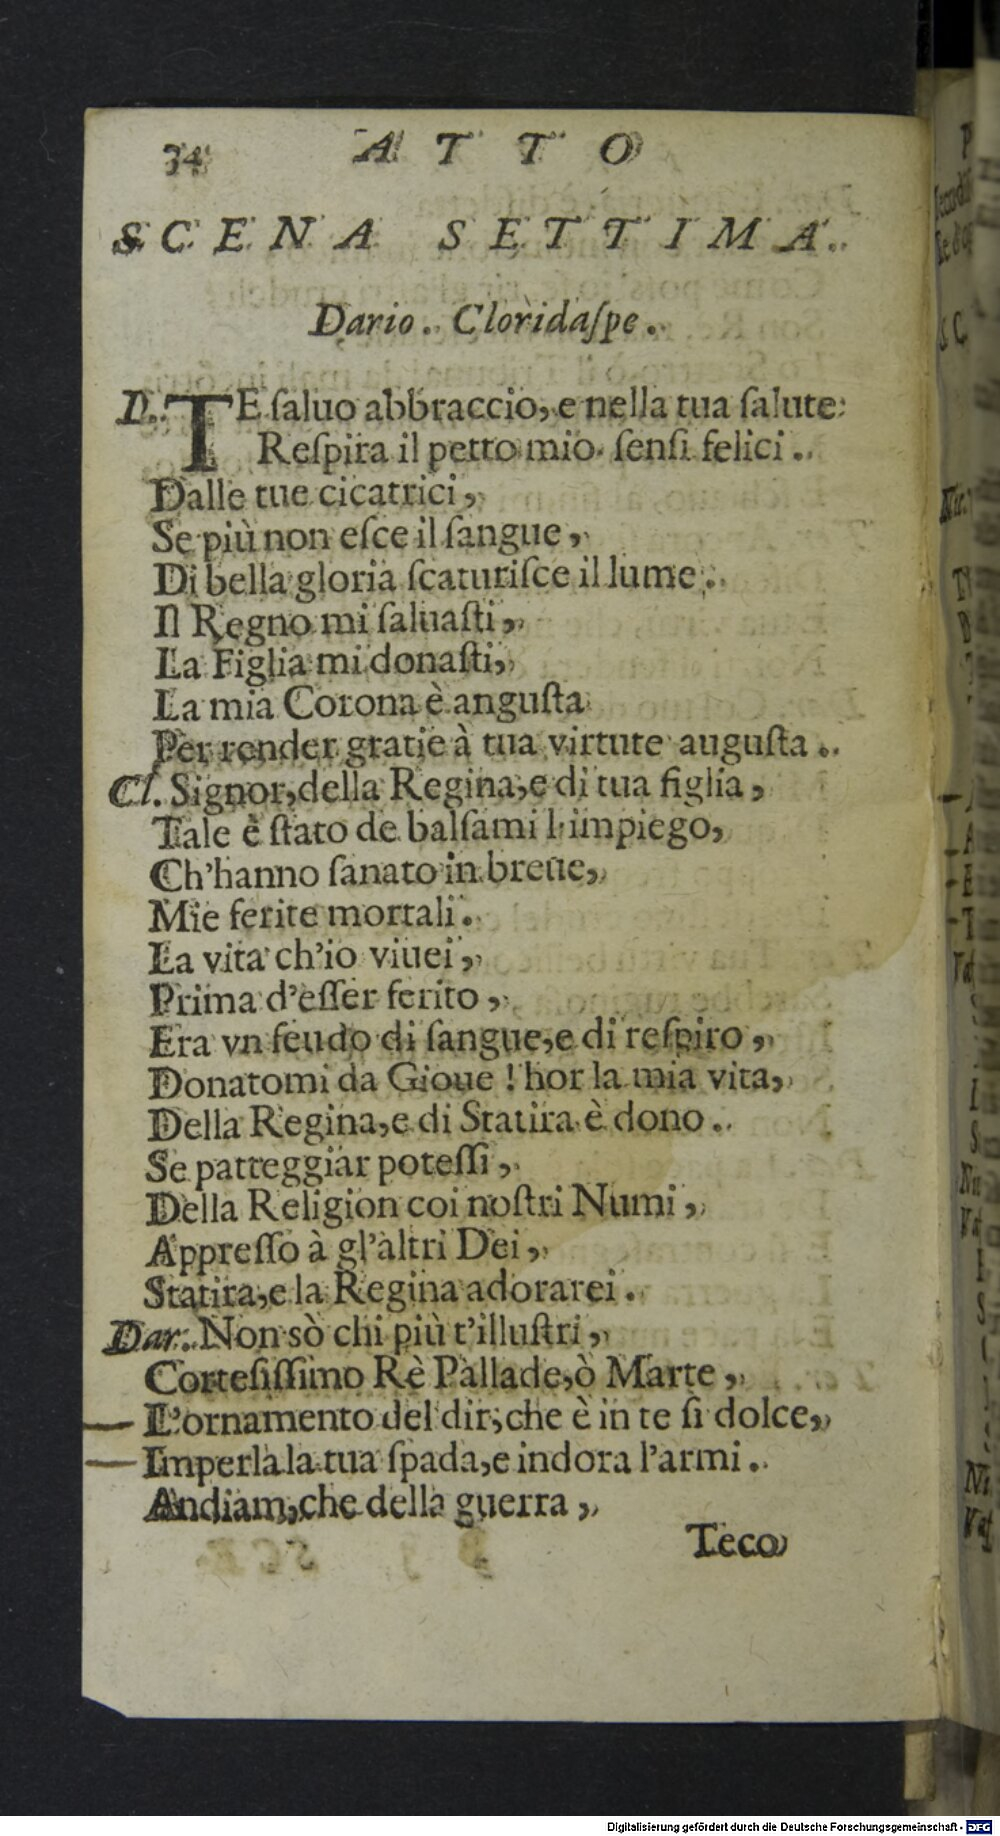 34 ATTO
SCENA SETTIMA.
Dario. Cloridaſpe.
D. TE ſaluo abbraccio, e nella tua ſalute
Reſpira il petto mio ſenſi felici.
Dalle tue cicatrici,
Se più non eſce il ſangue,
Di bella gloria ſcaturiſce il lume.
Il Regno mi ſaluaſti,
La Figlia mi donaſti,
La mia Corona è anguſta
Per render gratie à tua virtute auguſta.
Cl. Signor, della Regina, e di tua figlia,
Tale è ſtato de balſami l'impiego,
Ch'hanno ſanato in breue,
Mie ferite mortali.
La vita ch'io viuei,
Prima d'eſſer ferito,
Era vn feudo di ſangue, e di reſpiro,
Donatomi da Gioue! hor la mia vita,
Della Regina, e di Statira è dono.
Se patteggiar poteſſi,
Della Religion coi noſtri Numi,
Appreſſo à gl'altri Dei,
Statira, e la Regina adorarei.
Dar. Non sò chi più t'illuſtri,
Corteſiſſimo Rè Pallade, ò Marte,
L'ornamento del dir, che è in te ſi dolce,
Imperla la tua ſpada, e indora l'armi.
Andiam, che della guerra,
Teco
Digitalisierung gefördert durch die Deutsche Forschungsgemeinschaft - DFG